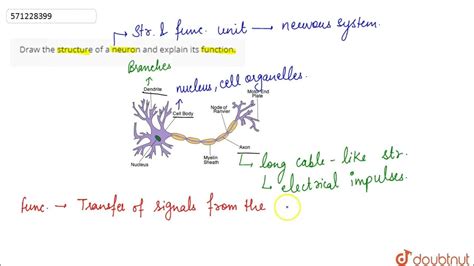 571228399
Str. & func. unit → nervous system.
Draw the structure of a neuron and explain its function.
Branches
nucleus, cell organelles.
Dendrite
Motor End
Plate
Cell Body
Node of
Ranvier
Axon
Nucleus
Myelin
Sheath
long cable-like str.
electrical impulses.
func. → Transfer of signals from the
doubtnut